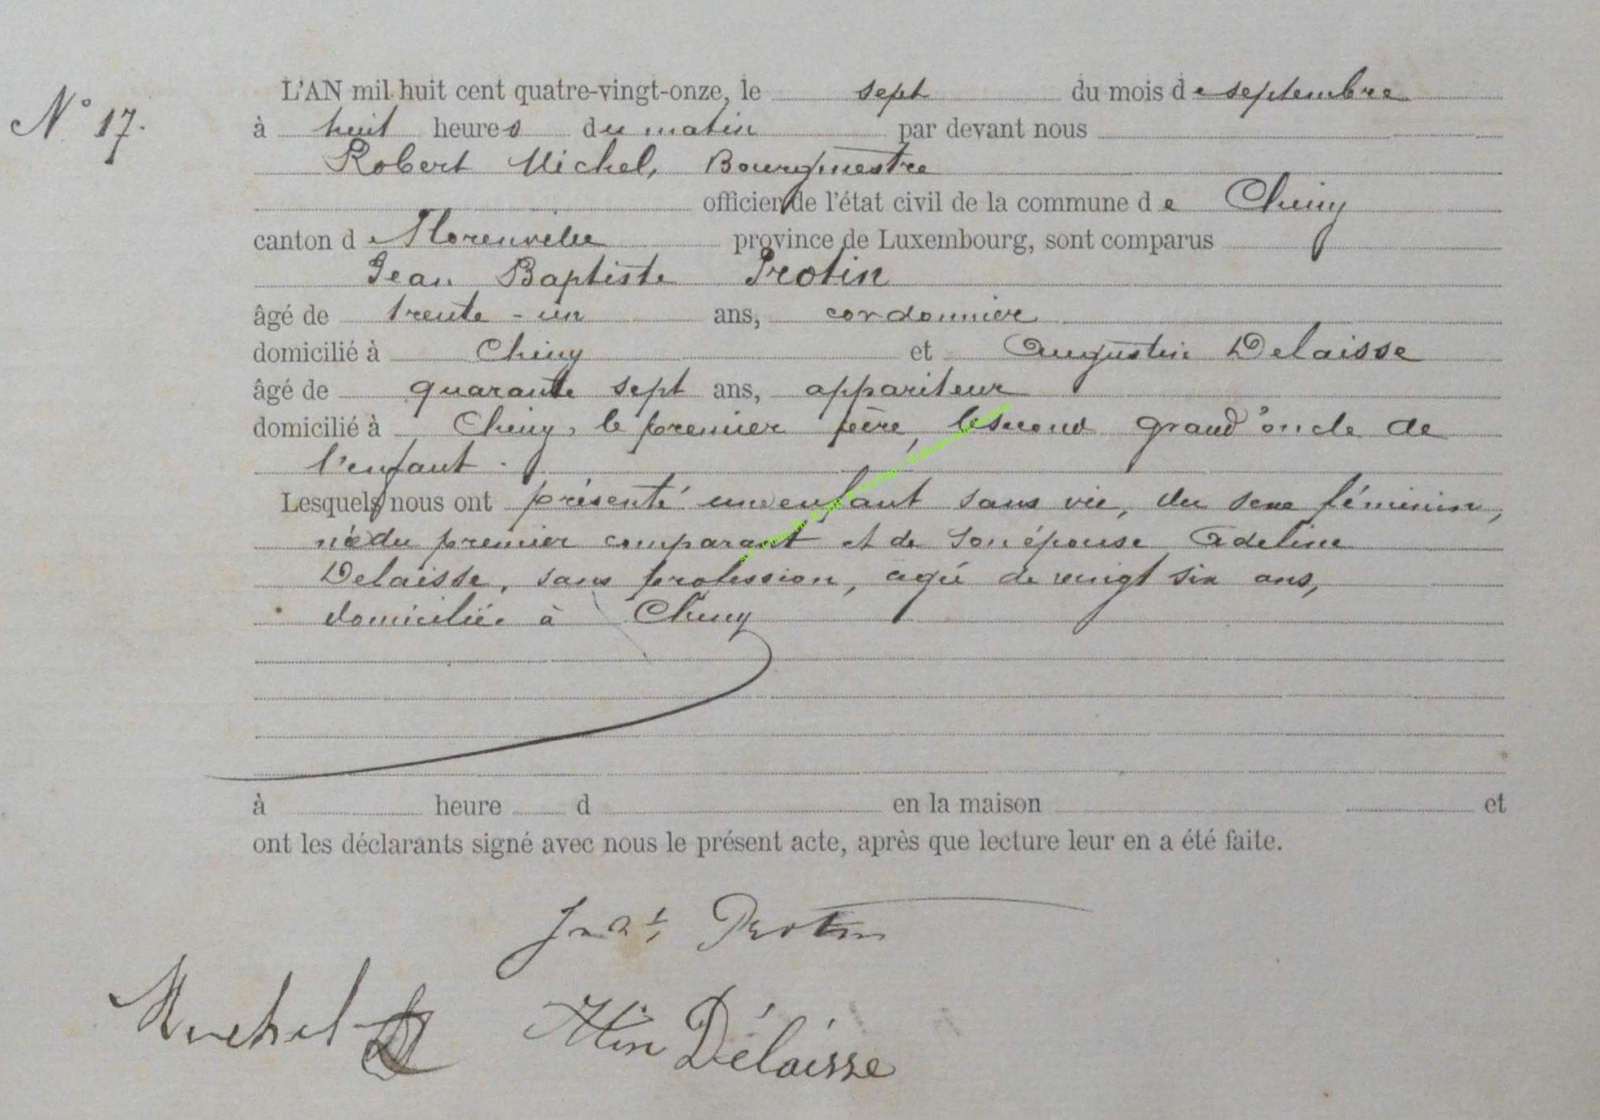 N° 17.
L'AN mil huit cent quatre-vingt-onze, le sept du mois de septembre
à huit heures du matin par devant nous
Robert Michel, Bourgmestre
officier de l'état civil de la commune de Chiny
canton de Florenville province de Luxembourg, sont comparus
Jean Baptiste Protin
âgé de trente-un ans, cordonnier
domicilié à Chiny et Augustin Delaisse
âgé de quarante sept ans, appariteur
domicilié à Chiny, le premier père, le second grand'oncle de
l'enfant.
Lesquels nous ont présenté un enfant sans vie, du sexe féminin,
née du premier comparant et de son épouse Adeline
Delaisse, sans profession, agée de vingt six ans,
domiciliée à Chiny
à heure d en la maison et
ont les déclarants signé avec nous le présent acte, après que lecture leur en a été faite.
Protin
Michel R Délaisse